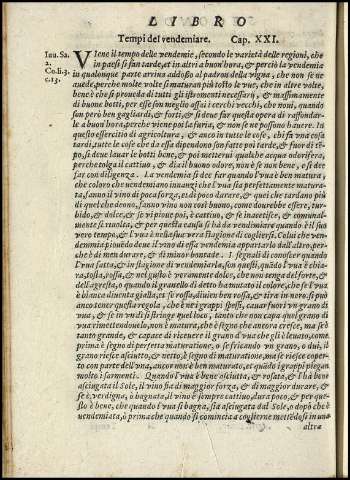 LIBRO
Tempi del vendemiare. Cap. XXI.
Iuu. Sa.
2.
Co. li. 3.
c. 13.
VIene il tempo delle vendemie, secondo le varietà delle regioni, che
in paesi si fan tarde, et in altri a buon'hora, & perciò la vendemia
in qualonque parte arriua addosso al padron della vigna, che non se ne
auede, perche molte volte si maturan più tosto le vue, che in altre volte,
bene è che si proueda di tutti gli istromenti necessarij, & massimamente
di buone botti, per esse son meglio assai i cerchi vecchi, che noui, quando
sun però ben gagliardi, & forti, & si deue far questa opera di raffondar-
le a buon'hora, perche viene poi la furia, & non se ne possono hauere. In
questo essercitio di agricoltura, & anco in tutte le cose, chi fa vna cosa
tardi, tutte le cose che da essa dipendono son fatte poi tarde, & fuor di tē-
po, si deue lauar le botti bene, & poi metterui qualche acqua odorifera,
perche tolga il cattiuo, & dia il buono odore, non è se non bene, & si dee
far con diligenza. La vendemia si dee far quando l'vua è ben matura,
che coloro che vendemiano innanzi che l'vua sia perfettamente matura-
ta, fanno il vino di poca forza, et di poco durare, & quei che tardano più
di quel che deono, fanno vino non così buono, come dourebbe essere, tur-
bido, & dolce, & se vi pioue poi, è cattiuo, & se inacetisce, & comunal-
mente si riuolta, & per questa causa si hà da vendemiare quando è il suo
vero tempo, & l'vua è nella vera stagione di cogliersi. Colui che ven-
demmia piouēdo deue il vino di essa vendemia appartarlo dall'altro, per-
che è di men durare, & di minor bontade. I segnali di conoscer quando
l'vua è fatta, & in stagione di vendemiarla, son questi, quādo l'vua è chia-
ra, tosta, rossa, & nel gusto è veramente dolce, che non tenga dell'forte, &
dell'agresta, o quando il granello di detto ha mutato il colore, che se l'vua
è bianca diuenta gialla, et se rossa, diuien ben rossa, & tira in nero. si può
ancor tener questa regola, che è ne i grappi spessi, cauar fuori vn grano di
vua, & se in vn dì si stringe quel loco, tanto che non capa quel grano di
vua rimettendouelo, non è matura, che è segno che ancora cresce, ma se è
tanto grande, & capace di riceuere il grano d'vua che gli è leuato, come
prima è segno di perfetta maturatione. o se fricando vn grano, o dui, il
grano riesce asciutto, & netto, è segno di maturatione, ma se riesce coper-
to con parte dell'vua, ancor non è ben maturato, et quādo i grappi piegan
molto i sarmenti. Quando l'vua è bene asciutta, & rosata, & l'hà bene
asciugata il Sole, il vino fia di maggior forza, & di maggior durare, &
se è verdigna, o bagnata il vino è sempre cattiuo, dura poco, & per que-
sto è bene, che quando l'vua si bagna, sia asciugata dal Sole, o dopò che è
vendemiata, o prima che quando si comincia a cogliere mettedosi in una
altra